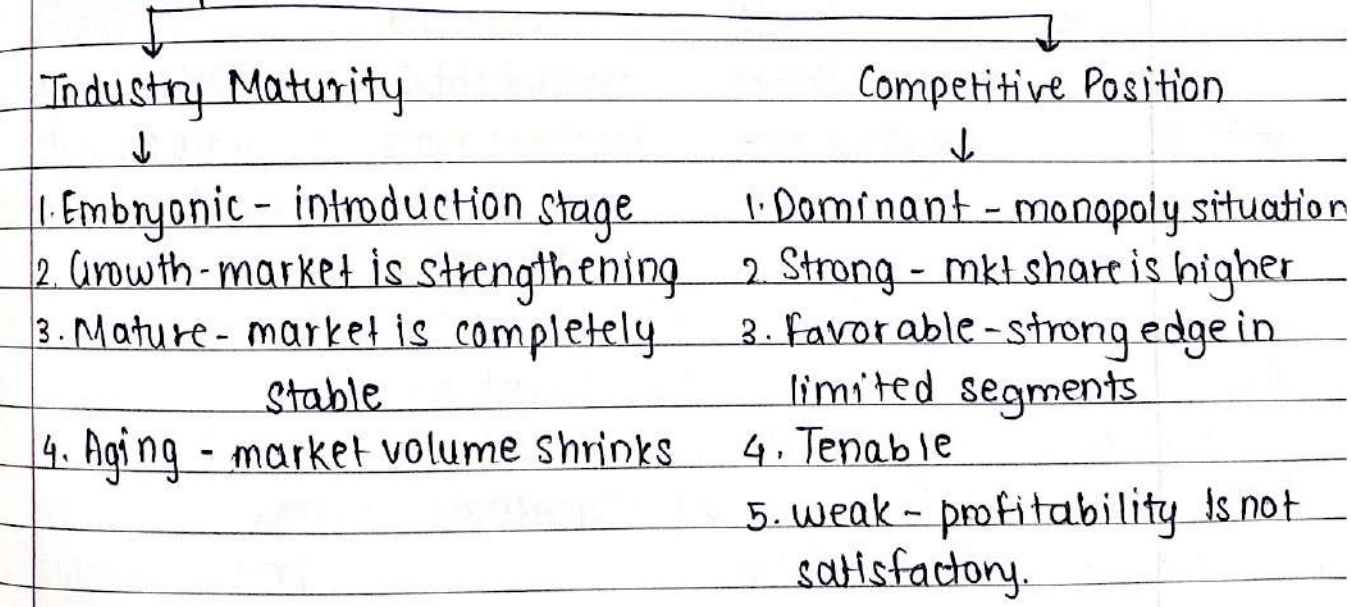 Industry Maturity
↓
1. Embryonic - introduction stage
2. Growth - market is strengthening
3. Mature - market is completely
stable
4. Aging - market volume shrinks
Competitive Position
↓
1. Dominant - monopoly situation
2. Strong - mkt share is higher
3. Favorable - strong edge in
limited segments
4. Tenable
5. weak - profitability is not
satisfactory.